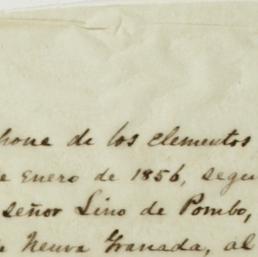 hone de los elementos
e enero de 1856, segu
señor Lino de Pombo,
Neuva Granada, al